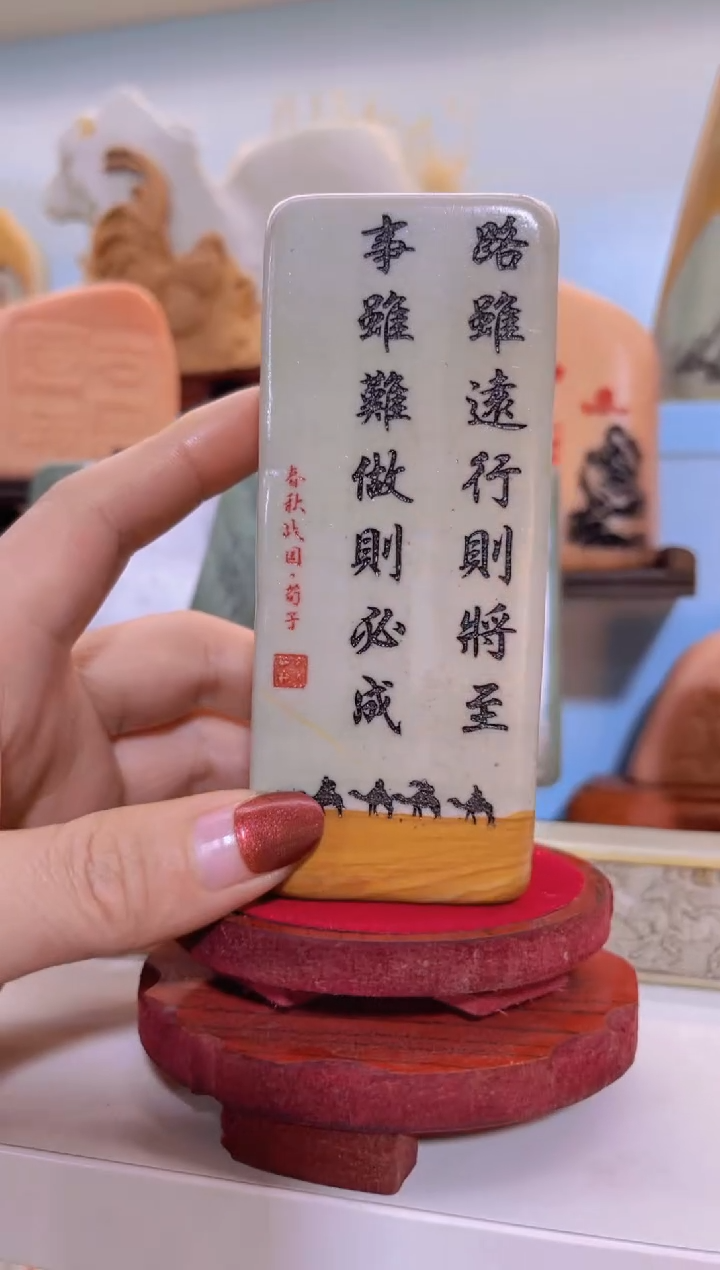 路雖遠行則將至
事雖難做則必成
春秋战国·荀子